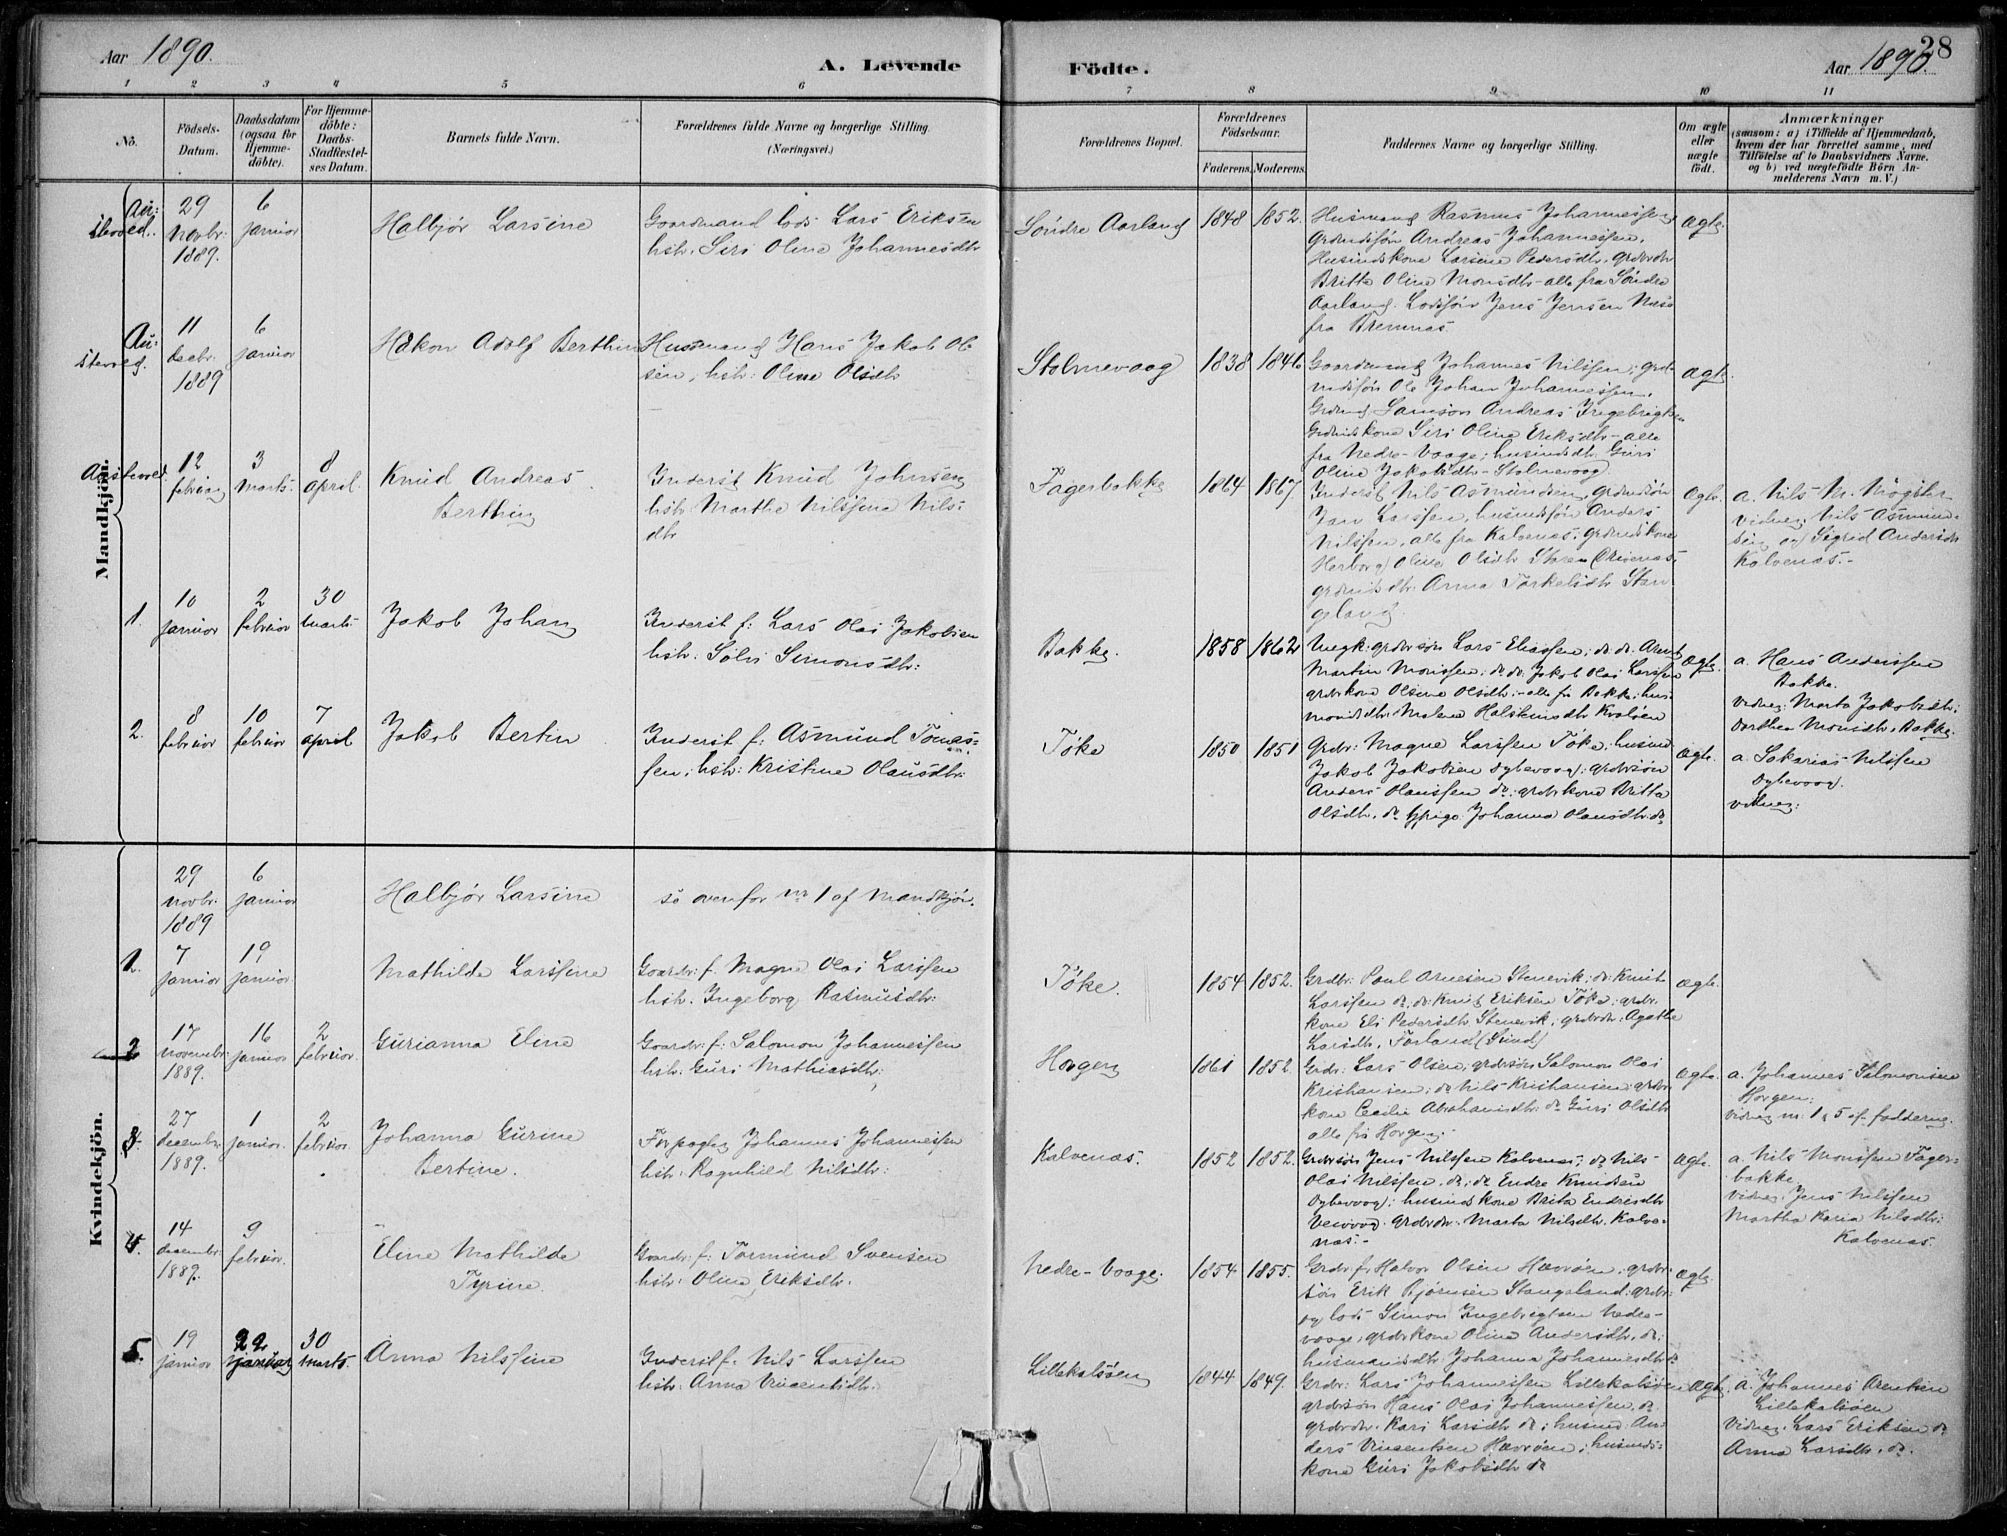 Aar 1890.
A. Levende
Födte.
Aar 1890.
28
1 2 3 4 5 6 7 8 9 10 11
No.
Födsels-
Datum.
Daabsdatum
(ogsaa for
Hjemme-
döbte).
For Hjemme-
döbte:
Daabs-
Stadfæstel-
ses Datum.
Barnets fulde Navn.
Forældrenes fulde Navne og borgerlige Stilling.
(Næringsvei.)
Forældrenes Bopæl.
Forældrenes
Födselsaar.
Faderens. Moderens.
Faddernes Navne og borgerlige Stilling.
Om ægte
eller
uægte
født.
Anmærkninger
(saasom: a) i Tilfælde af Hjemmedaab,
hvem der har forrettet samme, med
Tilföielse af to Daabsvidners Navne,
og b) ved uægtefödte Börn An-
melderens Navn m. V.)
Mandkjön.
Au:
stevold.
29
novbr.
1889.
6
januar
Halbjør Larsine
Gaardmand Lods Lars Eriksen
hstr. Siri Oline Johannesdtr
Søndre Aarland
1848 1852.
Husmand Rasmus Johannessen,
Grdmdsøn Andreas Johannessen,
Husmdskone Larsine Pedersdtr. grdbrdtr
Britte Oline Monsdtr - alle fra Søndre
Aarland. Lodssøn Jens Jensen Næss
fra Bremnes.
ægte.
Au:
stevold.
11
decbr.
1889
6
januar
Håkon Adolf Berthin
Husmand Hans Jakob Ol
sen, hstr: Oline Olsdtr
Stolmevaag
1838 1846
Gaardmand Johannes Nilssen; grd-
mdssøn Ole Johan Johannessen,
Grdmd Samson Andreas Ingebrigtsen
Grdmdskone Siri Oline Eriksdtr - alle
fra Nedre-Vaage; husmdsdtr. Guri
Oline Jakobsdtr - Stolmevaag
ægte
Austevold.
12
februar
3
marts.
8
april.
Knud Andreas
Berthin
Inderst Knud Johnsen
hstr Marthe Nilssine Nils-
dtr
Fagerbakke
1864 1867.
Inderst Nils Asmundsen, grdmdsøn
Jan Larssen, husmdssøn Anders
Nilssen, alle fra Kalvenæs; grdmdskone
Herborg Oline Olsdtr
grdmdsdtr. Anna Torkelsdtr Stan
geland.
ægte.
a. Nils M. Møgster
vidner: Nils Asmund-
sen og Sigrid Andersdtr
Kalvenæs.-
1.
10
januar
2
februar
30
marts.
Jakob Johan
Inderst f: Lars Olai Jakobsen
hstr. Sølvi Simonsdtr:
Bakke.
1858 1862
Ungk: grdbrsøn Lars Eliassen; do do. Arent
Martin Monssen; do do. Jakob Olai Larssen
grdbrkone Olsine Olsdtr; - alle fr Bakke; hus-
mandsdtr. Malene Halstensdtr Kvaløen
ægte.
a. Hans Anderssen
Bakke.
vidner: Marta Jakobsdtr;
Dorthea Monsdtr. Bakke.
2.
8
februar
10
februar
7
april
Jakob Bertin
Inderst f: Asmund Tomas-
sen; hstr: Kristine Olausdtr:
Tøke
1850 1851
Grdbr: Magne Larssen Tøke; husmd
Jakob Jakobsen Dybevaag; grdbrsøn
Anders Olaussen do; grdbrkone Britta
Olsdtr. do Johanna Olausdtr. do
ægte.
a. Sakarias Nilssen
Dybevaag.
vidner:
Kvindekjön.
29
novbr.
1889
6
januar
Halbjør Larsine
se ovenfor no 1 af Mandkjøn.
1.
7
januar
19
januar.
Mathilde Larssine
Gaardbr: f. Magne Olai Larssen
hstr. Ingeborg Rasmusdtr:
Tøke.
1854 1852.
Grdbr: Paul Arnesen Stenevik; do Knut
Larssen do, do Knut Eriksen Tøke; grdbr-
kone Eli Pedersdtr Stenevik; grdbrdtr: Agathe
Larsdtr. Førland (Sund)
ægte.
2
17
novembr.
1889.
16
januar
2
februar.
Gurianna Eline
Gaardbr: f: Salomon Johannessen
hstr: Guri Mathiasdtr:
Horgen
1861 1852.
Grdbr: Lars Olsen; grdbrsøn Salomon Olai
Kristiansen; do Nils Kristiansen; grdbr-
kone Cecilie Abrahamsdtr: do Guri Olsdtr
alle fra Horgen.-
ægte.
a. Johannes Salomonsen
Horgen:
vidner nr: 1 & 5 af fadderne.
3.
27
decembr.
1889.
1
januar.
2
februar
Johanna Gurine
Bertine.
Forpagter Johannes Johannessen
hstr: Ragnhild Nilsdtr:
Kalvenæs.
1852 1852.
Grdbrsøn Jens Nilssen Kalvenæs; do Nils
Olai Nilssen, do; do Endre Knudsen
Dybevaag; husmdskone Brita Endresdtr
Vevaag. grdbrdtr. Marta Nilsdtr. Kalve-
næs.-
ægte.
a. Nils Monssen Fager-
bakke
vidner: Jens Nilssen
Martha Karia Nilsdtr:
Kalvenæs.
4.
14
decembr.
1889.
9
februar.
Eline Mathilde
Tyrine.
Gaardbr: f. Tormund Svensen
hstr: Oline Eriksdtr.
Nedre-Vaage.
1854 1855.
Grdbr f. Halvor Olsen Hævrøen; grdbr-
søn Erik Bjørnsen Stangeland; grdbr:
og lods Simon Ingebrigtsen Nedre-
vaage; grdbrkone Oline Andersdtr. do:
husmandsdtr. Johanna Johannesdtr do
ægte.
5.
19
januar
22
januar
30
marts.
Anna Nilssine
Inderst f. Nils Larssen
hstr: Anna Vincentsdtr:
Lillekalsøen
1844 1849.
Grdbr: Lars Johannessen Lillekalsøen
grdbrsøn Hans Olai Johannessen, do
grdbrdtr. Kari Larsdtr do; husmd. An-
ders Vincentsen Hævrøen; husmds-
kone Guri Jakobsdtr do
ægte.
a. Johannes Arentsen
Lillekalsøen
vidner: Lars Eriksen do
Anna Larsdtr. do.